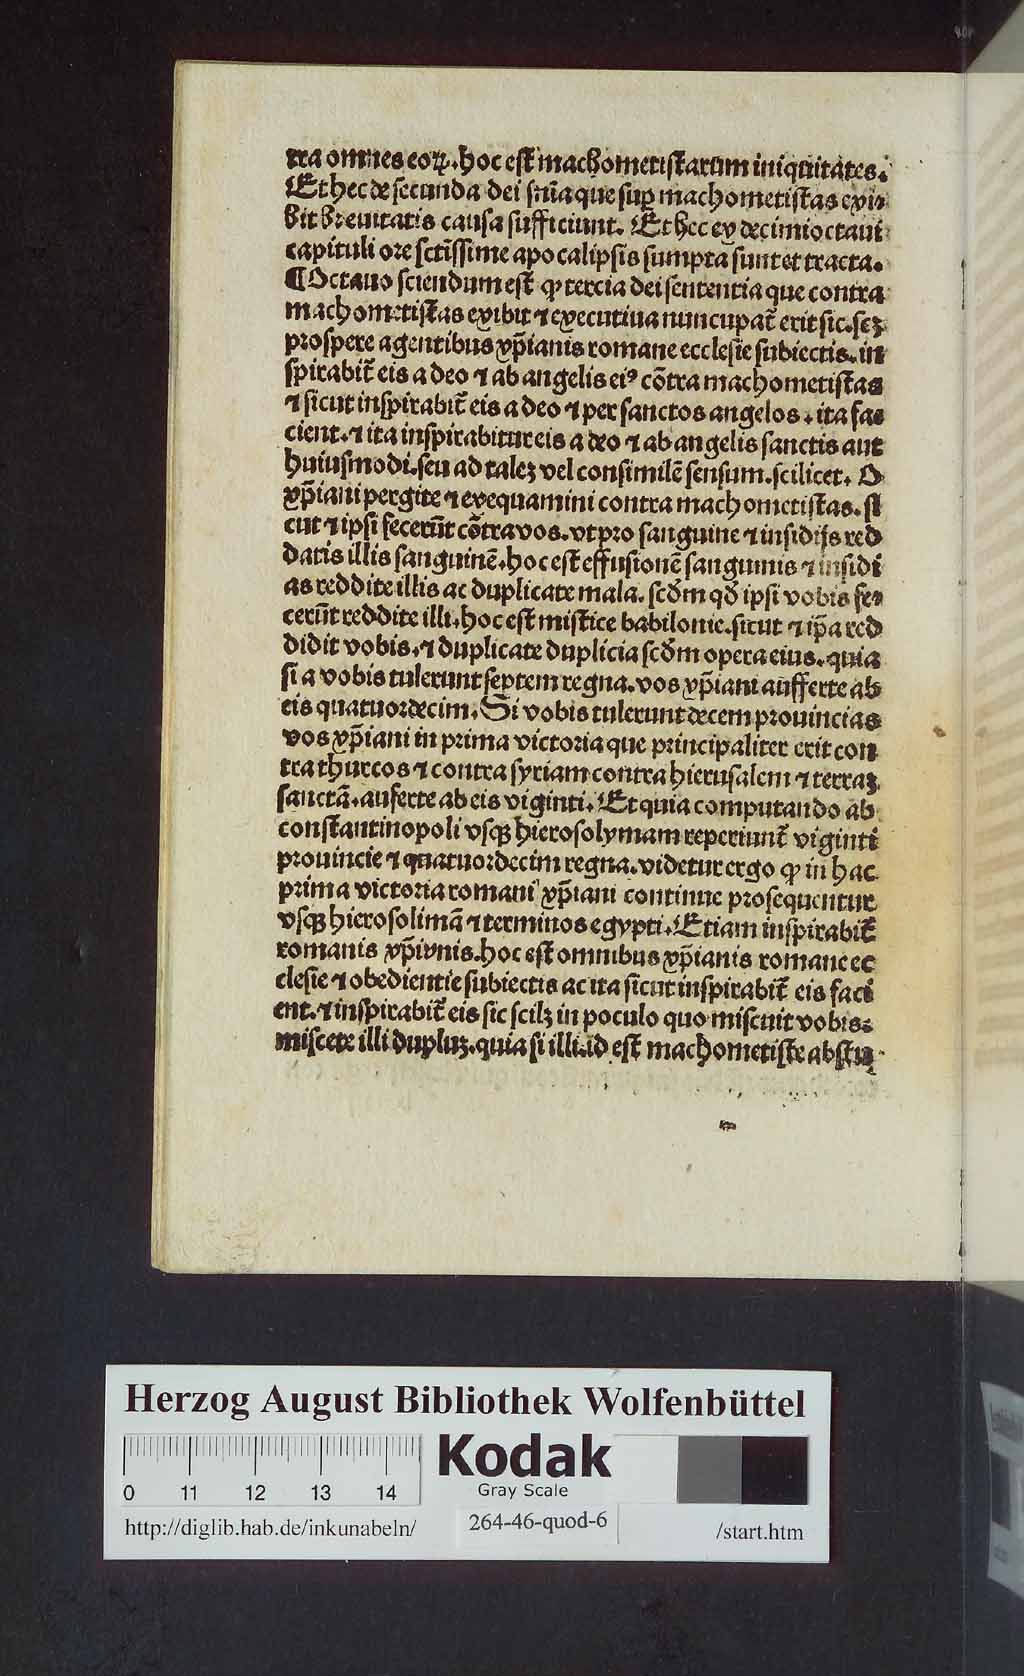 tra omnes eoꝝ. hoc est machometistarum iniquitates.
Et hec de secunda dei sn̄ia que suꝑ machometistas exi⸗
bit breuitatis causa sufficiunt. Et hec ex decimioctaui
capituli ore sctissime apocalipsis sumpta sunt et tracta.
¶ Octauo sciendum est ꝙ tercia dei sententia que contra
machometistas exibit ⁊ executiua nuncupat̃ erit sic. scꝫ
prospere agentibus xp̄ianis romane ecclesie subiectis. in
spirabit̃ eis a deo ⁊ ab angelis eiꝰ cōtra machometistas
⁊ sicut inspirabit̃ eis a deo ⁊ per sanctos angelos. ita fa⸗
cient. ⁊ ita inspirabitur eis a deo ⁊ ab angelis sanctis aut
huiusmodi. seu ad taleꝫ vel consimilē sensum. scilicet. O
xp̄iani pergite ⁊ exequamini contra machometistas. si
cut ⁊ ipsi fecerūt cōtra vos. vt pro sanguine ⁊ insidijs red
datis illis sanguinē. hoc est effusionē sanguinis ⁊ insidi
as reddite illis ac duplicate mala. scd̄m qd̄ ipsi vobis fe⸗
cerūt reddite illi. hoc est mistice babilonie. sicut ⁊ ip̄a red
didit vobis. ⁊ duplicate duplicia scd̄m opera eius. quia
si a vobis tulerunt septem regna. vos xp̄iani aufferte ab
eis quatuordecim. Si vobis tulerunt decem prouincias
vos xp̄iani in prima victoria que principaliter erit con
tra thurcos ⁊ contra syriam contra hierusalem ⁊ terraꝫ
sanctā. auferte ab eis viginti. Et quia computando ab
constantinopoli vsqꝫ hierosolymam reperiunt̃ viginti
prouincie ⁊ quatuordecim regna. videtur ergo ꝙ in hac
prima victoria romani xp̄iani continue prosequentur
vsqꝫ hierosolimā ⁊ terminos egypti. Etiam inspirabit̃
romanis xp̄ivnis. hoc est omnibus xp̄ianis romane ec
clesie ⁊ obedientie subiectis ac ita sicut inspirabit̃ eis faci
ent. ⁊ inspirabit̃ eis sic scilꝫ in poculo quo miscuit vobis:
miscete illi dupluꝫ. quia si illi. id est machometiste abstu
Herzog August Bibliothek Wolfenbüttel
0 11 12 13 14
Kodak
Gray Scale
264-46-quod-6
http://diglib.hab.de/inkunabeln/ /start.htm